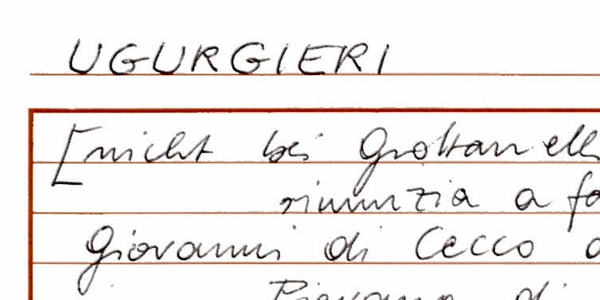 UGURGIERI
[nicht bei Grottanelli
rinunzia a fa
Giovanni di Cecco d
Piovano di